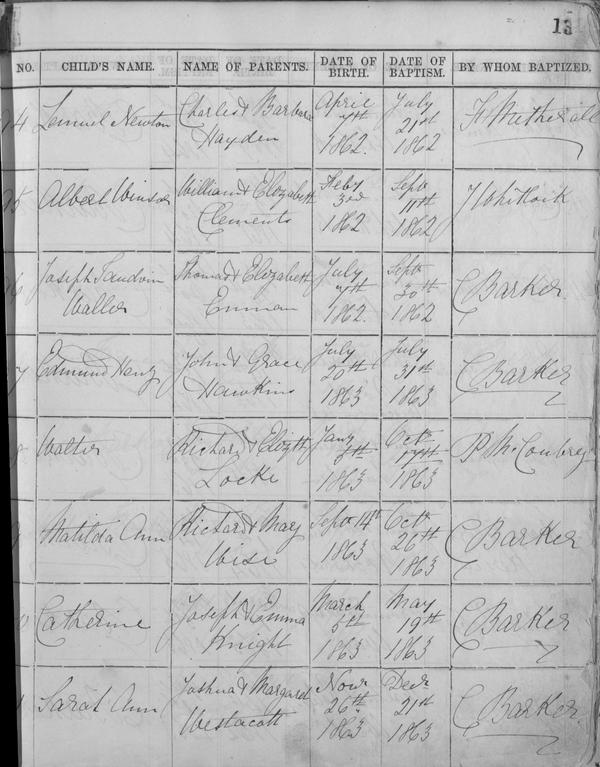 13
NO. CHILD'S NAME. NAME OF PARENTS. DATE OF BIRTH. DATE OF BAPTISM. BY WHOM BAPTIZED.
4 Lemuel Newton Charles & Barbara Hayden April 7th 1862. July 21st 1862
5 Albert Winsor William & Elizabeth Clements Feby 3rd 1862 Sept 11th 1862
6 Joseph Waller Thomas & Elizabeth July 7th 1862. Sept 30th 1862 C Barker.
7 Edmund Henry John & Grace Hawkins July 20th 1863 July 31st 1863 C Barker
8 Walter Richard & Elizth Locke Jany 1863 Oct 17th 1863 R McCoubrey
Matilda Ann Richard & Mary Wise Sept 14th 1863 Oct 26th 1863 C Barker
0 Catherine Joseph & Emma Knight March 5th 1863 May 19th 1863 C Barker
1 Sarah Ann Joshua & Margaret Westacott Novr 26th 1863 Decr 21st 1863 C Barker.